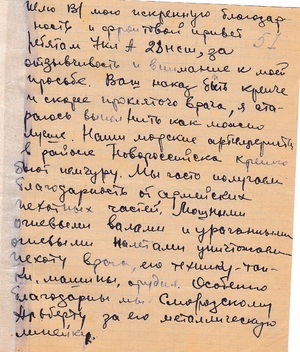 шлю Вам мою искреннюю благодар-
ность и фронтовой привет
ребятам 7кл А 28 нсш, за 57
отзывчивость и внимание к моей
просьбе. Ваш наказ быть крепче
и скорее проклятого врага, я ста-
раюсь выполнить как можно
лучше. Наши морские артиллеристы
в районе Новороссийска крепко
бьют немчуру. Мы часто получаем
благодарность от армейских
пехотных частей. Мощными
огневыми валами и ураганными
огневыми налетами уничтожаем
пехоту врага, его технику-тан-
ки, машины, орудия. Особенно
благодарны мы Смородскому
Альберту за его металлическую
линейку.